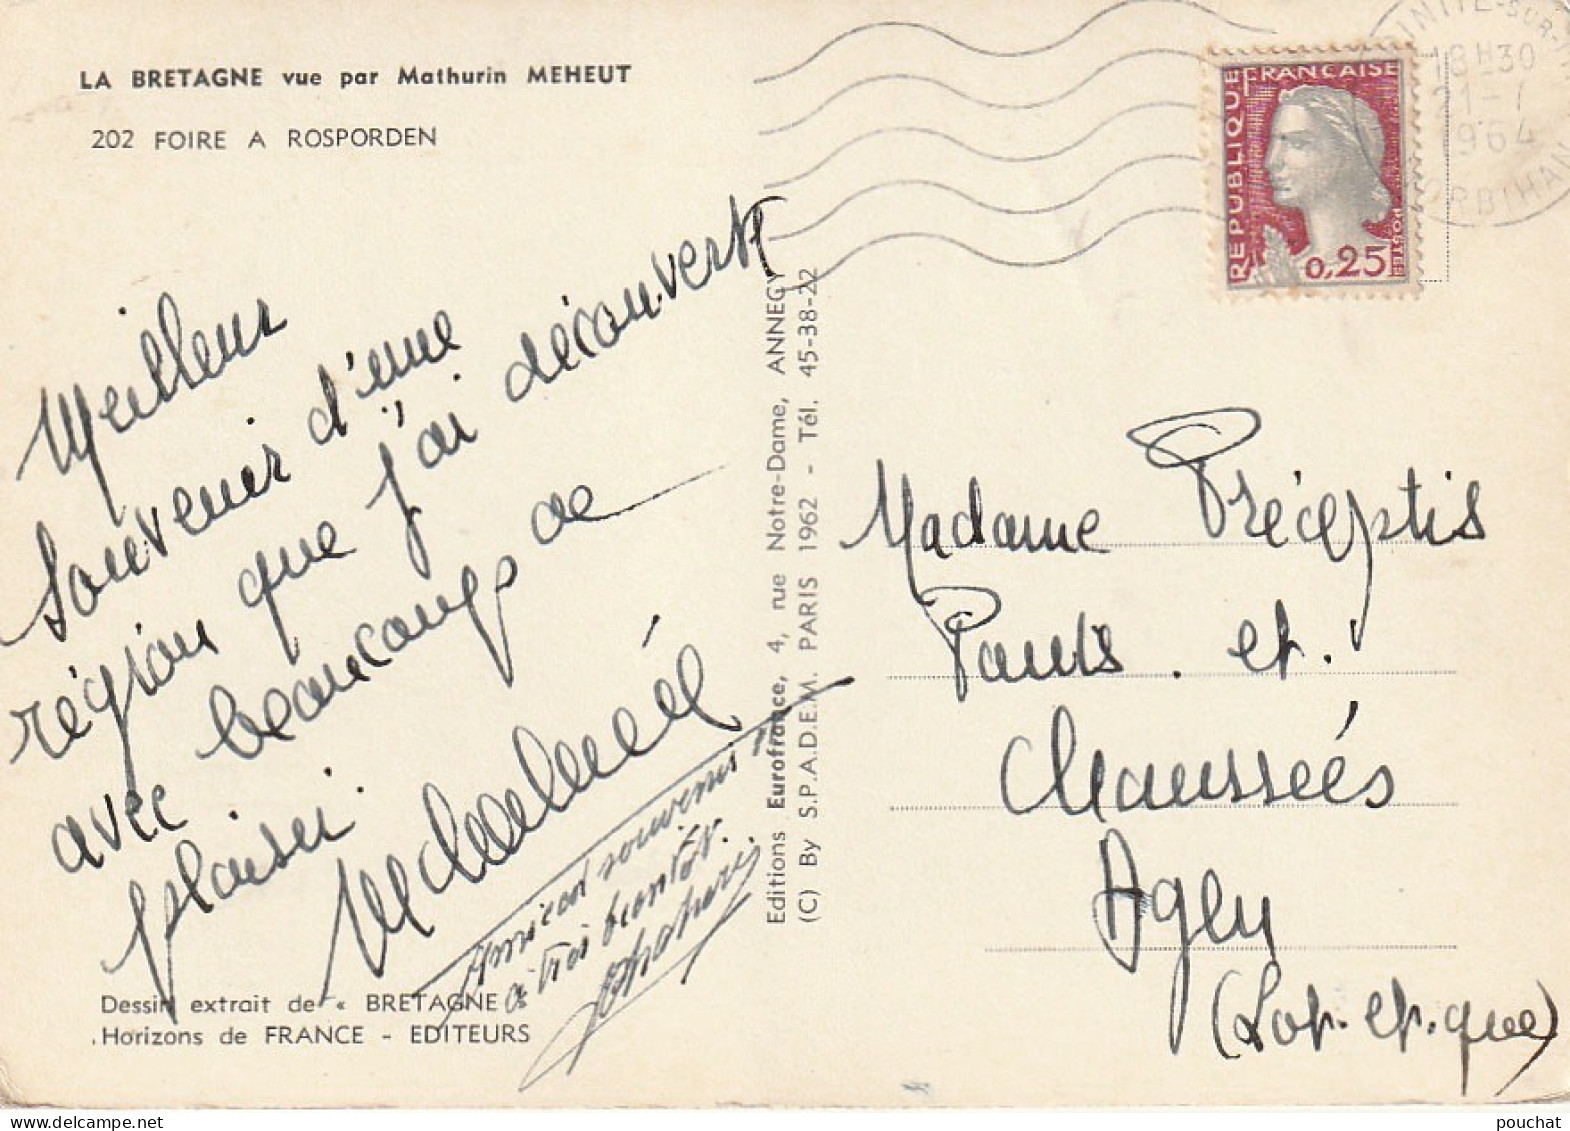 LA BRETAGNE vue par Mathurin MEHEUT
202 FOIRE A ROSPORDEN
Meilleur
souvenir d'une
région que j'ai découverte
avec beaucoup de
plaisir.
Amical souvenir
à très bientôt.
Dessin extrait de « BRETAGNE »
Horizons de FRANCE - EDITEURS
Editions Eurofrance, 4, rue Notre-Dame, ANNECY
(C) By S.P.A.D.E.M. PARIS 1962 - Tél. 45-38-22
INITE-SUR-
18H30
21-7
1964
ORBIHAN
REPUBLIQUE FRANCAISE
POSTES
0,25
Madame Préceptis
Ponts. et.
Chaussées
Agen
(Lot. et. que)
pouchat